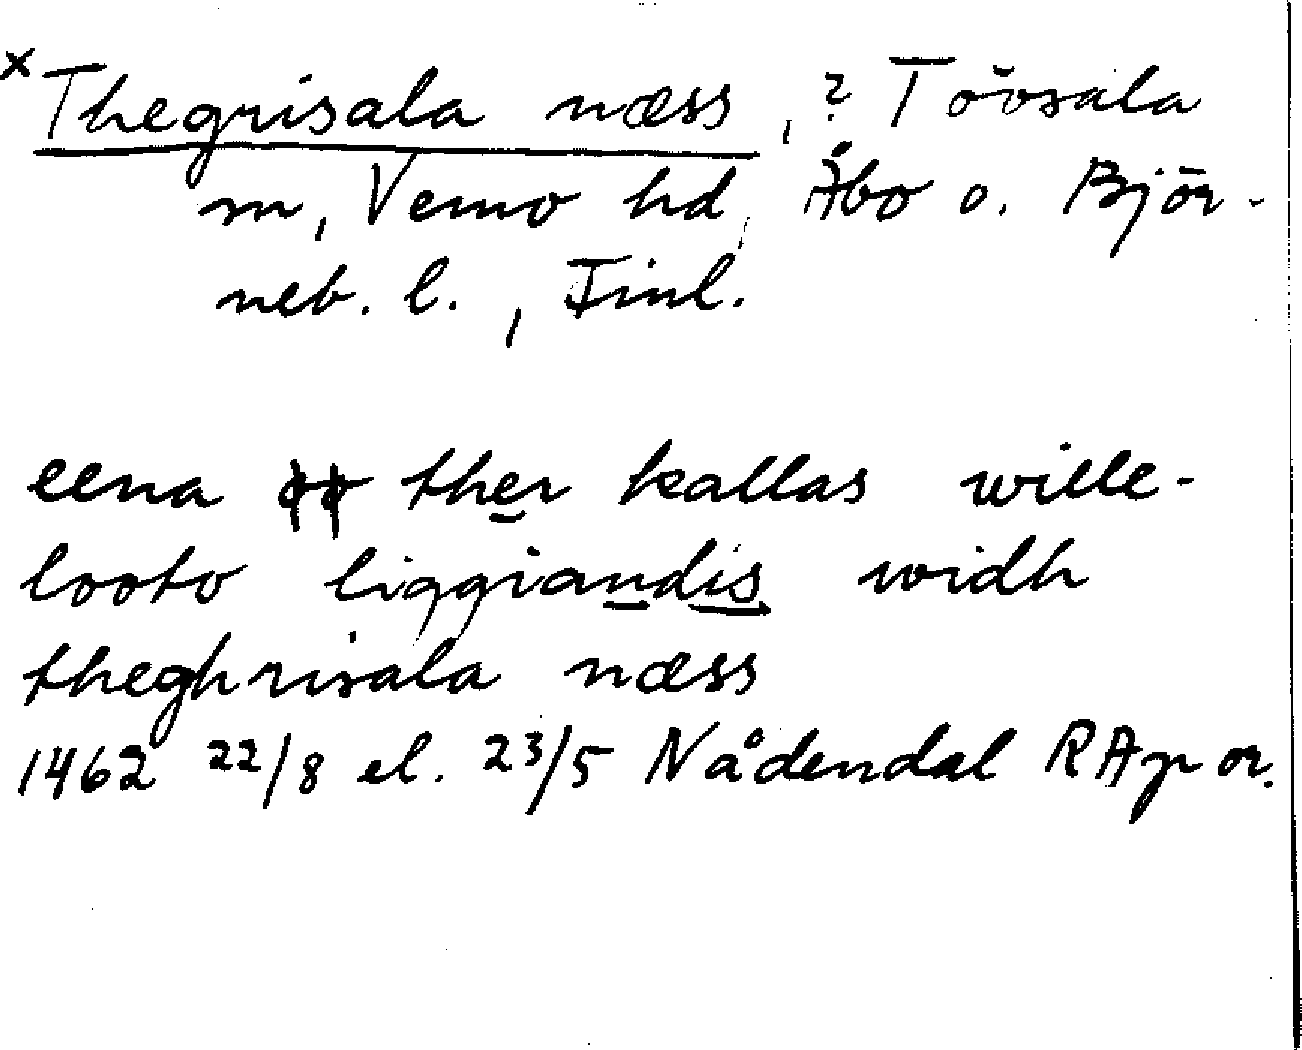 x Thegrisala næss, ? Tövsala
sn, Vemo hd, Åbo o. Björ-
neb. l., Finl.
eena ther kallas wille-
looto liggiandis widh
theghrisala næss
1462 22/8 el. 23/5 Nådendal RAp or.